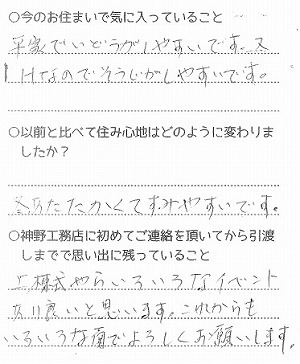 ○今のお住まいで気に入っていること
平家でいどうがしやすいです。又
IHなのでそうじがしやすいです。
○以前と比べて住み心地はどのように変わりま
したか？
冬あたたかくてすみやすいです。
○神野工務店に初めてご連絡を頂いてから引渡
しまでで思い出に残っていること
上棟式やらいろいろなイベント
があり良いと思います。これからも
いろいろな面でよろしくお願いします。